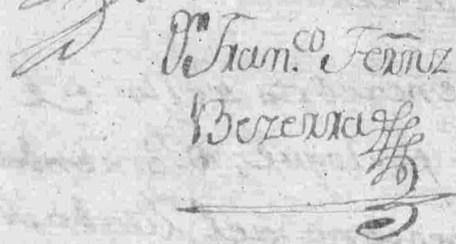 Dn Fran.co Fernz
Bezerra